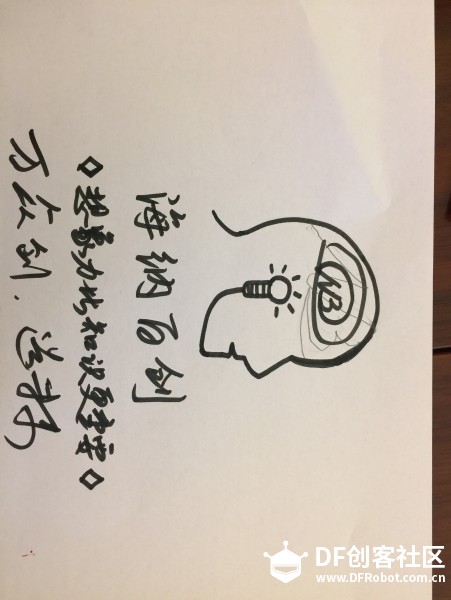 NB
海纳百创
◇想象力比知识更重要◇
万众创.
DF创客社区
www.DFRobot.com.cn